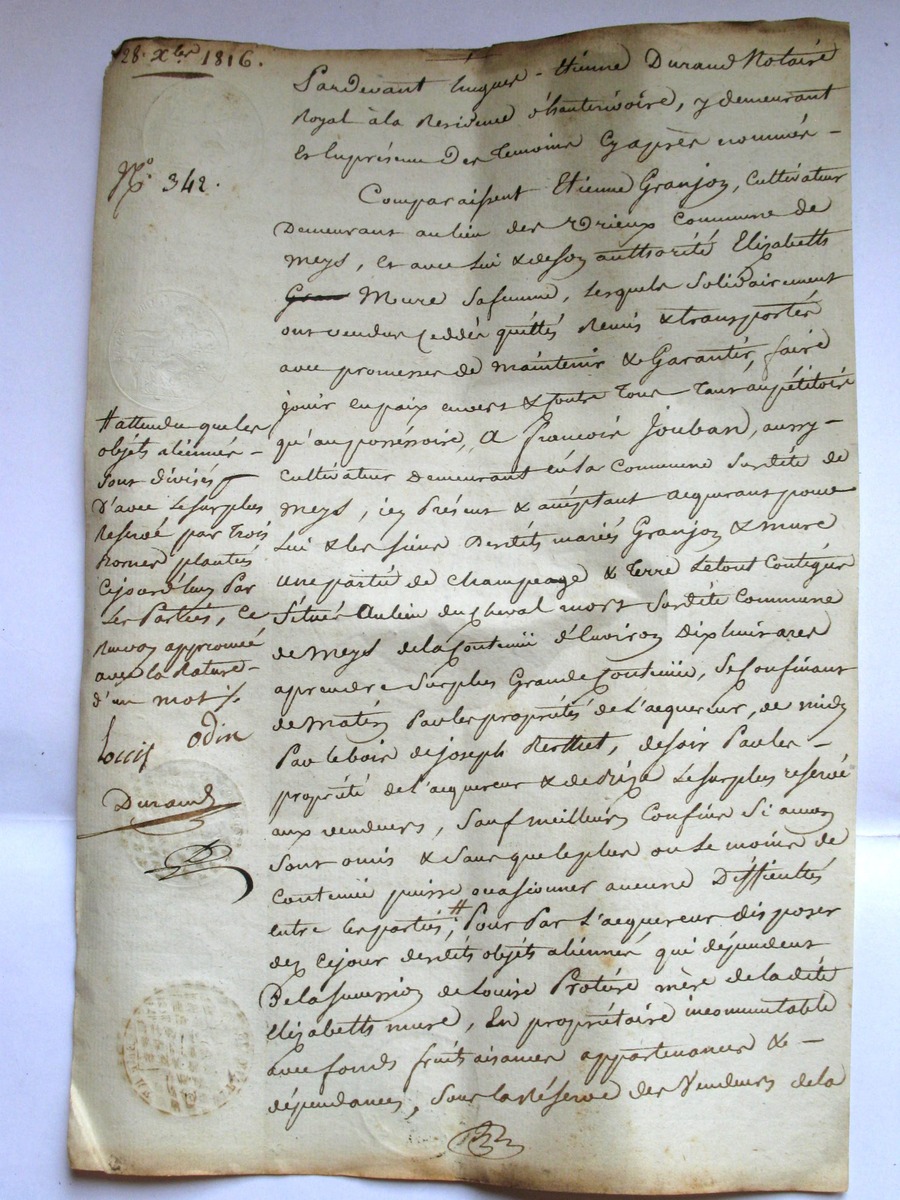 28. Xbre 1816.
N° 342.
Pardevant hugues-Etienne Durand Notaire
Royal à la Residence d'hauterivoire, y demeurant
Et En présence Des temoins Cy après nommés -
Comparaissent Etienne Granjon, Cultivateur
Demeurant au lieu des Commune de
Meys, Et avec Lui & de son authorité Elizabeth
Mure Sa femme, Lesquels Solidairement
ont vendus ceddés quittés Remis & transportés
avec promesses de maintenir & Garantir, faire
jouir en paix envers & contre tous tant au pétitoire
qu'au possessoire, A francois Jouban, aussy -
cultivateur Demeurant en la Commune Surdite de
Meys, icy Présent & acceptant acquerant pour
Lui & les siens Desdits mariés Granjon & Mure
une partie de champeage & Terre Le tout Contigus
Située Au lieu du Cheval mort Surdite Commune
de Meys de la Contenue d'Environ Dix huit ares
a prendre Surplus Grande Contenue, Se Confinant
de matin Par les propriétés de L'acquereur, de midy
Par le bois de joseph Berthet, de soir Par les -
propriété de l'acquereur & de bize Le surplus reservé
aux vendeurs, Sauf meilleurs Confins Si aucun
Sont omis & Sans que le plus ou Le moins de
Contenue puisse ocasionner aucune Difficultés
entre les parties;# Pour Par L'acquereur disposer
dez cejour desdits objets aliennés qui dépendent
De la succession de Louise Protière mère de la dite
Elizabeth mure, En propriétaire incommutable
avec fonds fruits aisances appartenances & -
dépendances, Sous la Réserve des Vendeurs de la
# attendu que les
objets aliennés -
Sont divisés
D'avec Le surplus
Reservé par trois
Bornes plantés
Cejourd'huy Par
Les Parties, Ce
Renvoy approuvé
avec la Rature -
d'un mot ./.
Louis Odin
Durand